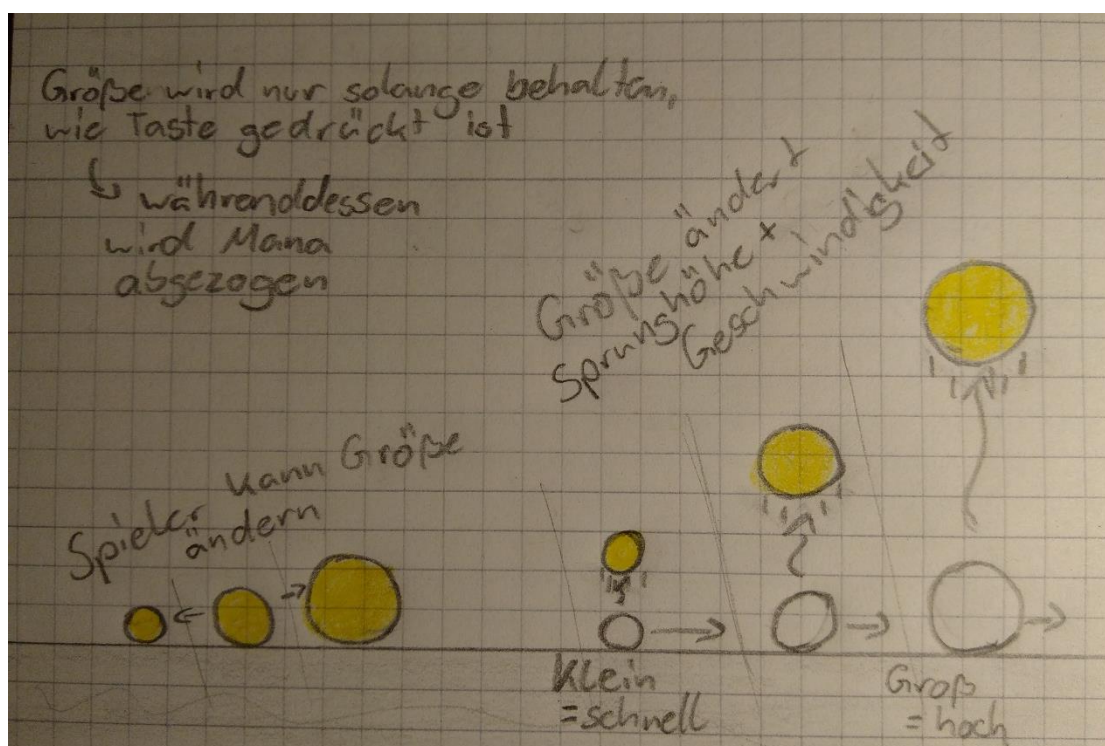 Größe wird nur solange behalten,
wie Taste gedrückt ist
währenddessen
wird Mana
abgezogen
Größe ändert
Sprunghöhe +
Geschwindigkeit
Spieler kann Größe
ändern
Klein
=schnell
Groß
=hoch